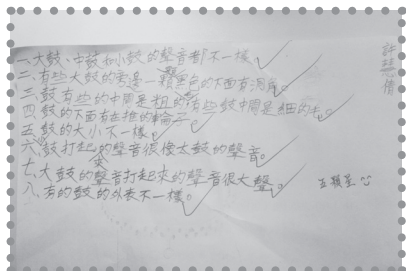 一、大鼓、中鼓和小鼓的聲音都不一樣。
二、有些大鼓的旁邊一顆黑色的下面有洞。
三、鼓有些的中間是粗的有些鼓中間是細的
四、鼓的下面有在推的輪子。
五、鼓的大小不一樣。
六、鼓打起的聲音很像太鼓的聲音。
七、大鼓的聲音打起來的聲音很大聲。
八、有的鼓的外表不一樣。
五顆星